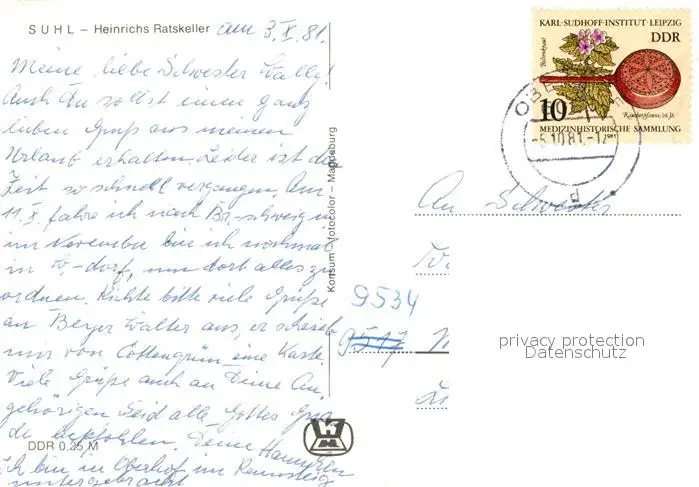 SUHL – Heinrichs Ratskeller am 3. X. 81.
Meine liebe Schwester Wally!
Auch Du sollst einen ganz
lieben Gruß aus meinem
Urlaub erhalten. Leider ist die
Zeit so schnell vergangen. Am
11. X. fahre ich nach Br.-schweig u
im November bin ich nochmal
in -dorf, um dort alles zu
ordnen. Richte bitte viele Grüße
an Beyer Walter aus, er schrieb
mir von Cottengrün eine Karte.
Viele Grüße auch an Deine An-
gehörigen. Seid alle Gottes Gna-
de empfohlen. Deine
Ich bin in Oberhof im Rennsteig
untergebracht
DDR 0,25 M
Konsum – fotocolor – Magdeburg
KARL-SUDHOFF-INSTITUT · LEIPZIG
DDR
Bilsenkraut
10
Räucherpfanne/16. Jh.
MEDIZINHISTORISCHE SAMMLUNG
1981
-5.10.81.-12
d
An Schwester
9534
9517
privacy protection
Datenschutz